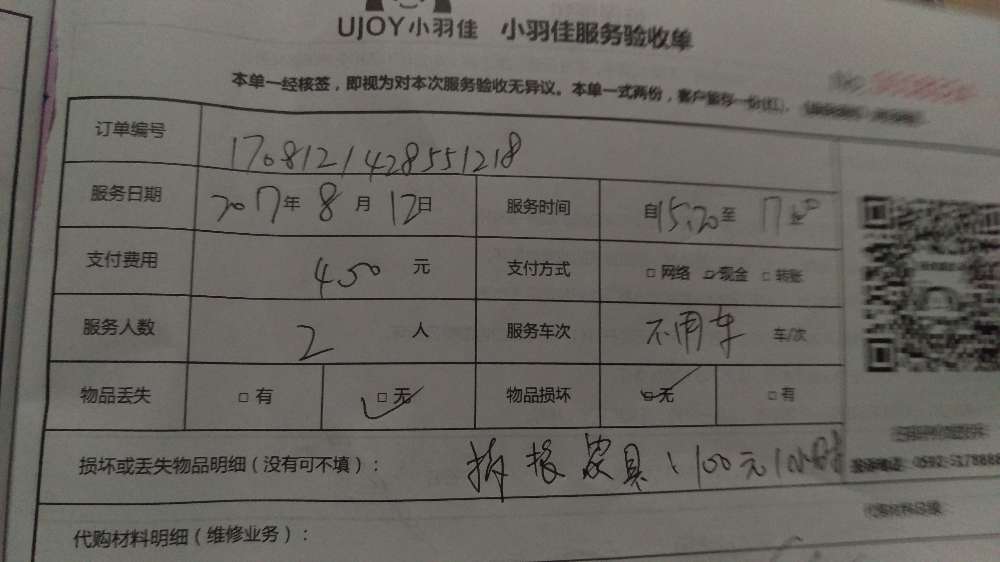 UJOY小羽佳 小羽佳服务验收单
本单一经核签，即视为对本次服务验收无异议。本单一式两份，客户留存一份(红)，
订单编号 1708121428551218
服务日期 2017年8月12日 服务时间 自15:20至17
支付费用 450元 支付方式 □网络 □现金 □转账
服务人数 2人 服务车次 不用车 车/次
物品丢失 □有 □无 物品损坏 □无 □有
损坏或丢失物品明细（没有可不填）： 拆 家具 100元1小时
0592-5178888
代购材料明细（维修业务）： 代购材料总额：